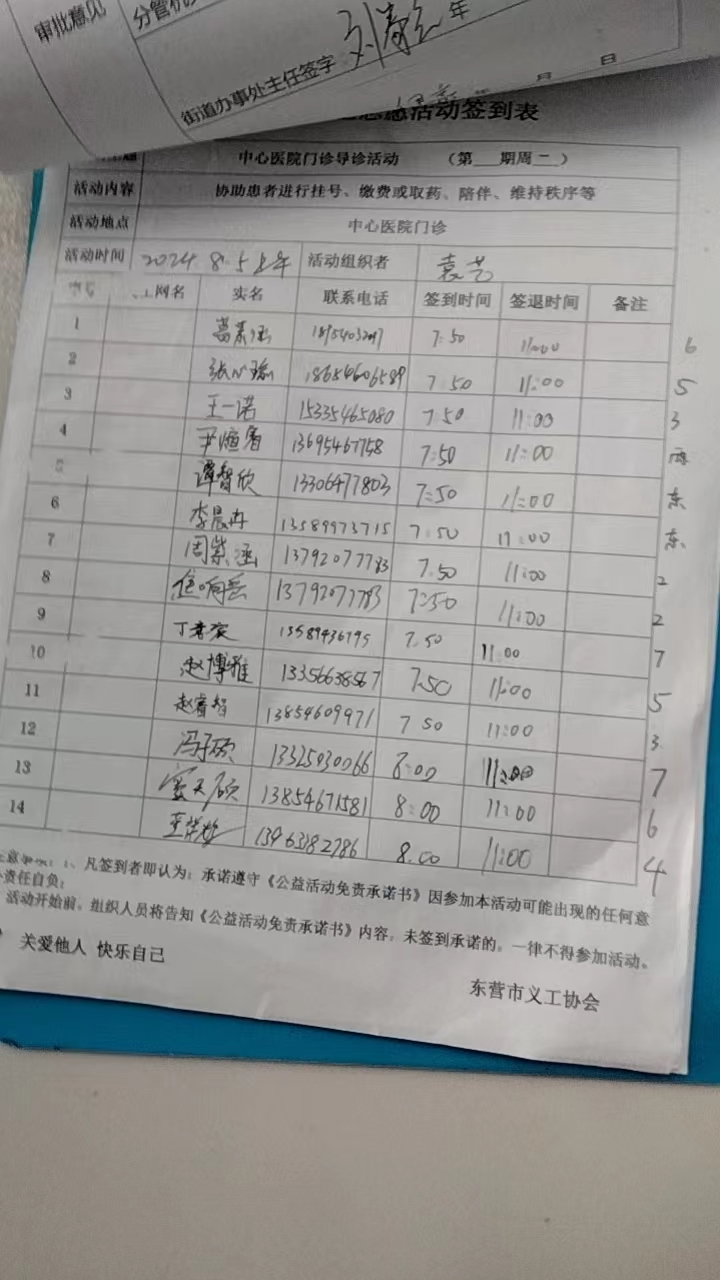 审批意见
分管机
街道办事处主任签字
年
月 日
活动签到表
中心医院门诊导诊活动 （第 期周二）
活动内容 协助患者进行挂号、缴费或取药、陪伴、维持秩序等
活动地点 中心医院门诊
活动时间 2024.8.5上午 活动组织者 袁艺
网名 实名 联系电话 签到时间 签退时间 备注
1 7:50 11:00 6
2 18654606589 7:50 11:00 5
3 王一诺 15335465080 7:50 11:00 3
4 13695467758 7:50 11:00 西
5 谭智欣 13306477803 7:50 11:00 东
6 李晨冉 13589973715 7:50 11:00 东
7 周紫涵 13792077783 7:50 11:00 2
8 13792077783 7:50 11:00 2
9 7:50 11:00 7
10 赵博雅 13356638567 7:50 11:00 5
11 赵睿智 13854609971 7:50 11:00 3
12 冯子硕 13325030066 8:00 11:00 7
13 13854671581 8:00 11:00 6
14 8:00 11:00 4
1、凡签到者即认为：承诺遵守《公益活动免责承诺书》因参加本活动可能出现的任何意
责任自负；
活动开始前，组织人员将告知《公益活动免责承诺书》内容，未签到承诺的，一律不得参加活动。
关爱他人 快乐自己
东营市义工协会